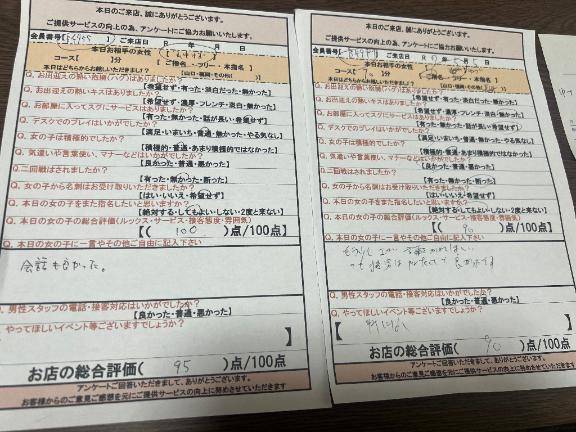 本日のご来店、誠にありがとうございます。
ご提供サービスの向上の為、アンケートにご協力お願いします。
会員番号【 】ご来店日 年 月 日
本日お相手の女性
コース【 】分 【 ご指名・フリー・本指名 】
本日はどちらお願いいただけましたか?
Q. お出迎えの熱い抱擁(ハグ)はありましたか?
【希望せず・有った・淡白だった・無かった】
Q. お出迎えの熱いキスはありましたか?
【希望せず・濃厚・フレンチ・淡白・無かった】
Q. お部屋に入ってスグにサービスはありましたか?
【有った・無かった・話が長い・希望せず】
Q. デスクでのプレイはいかがでしたか?
【満足・いまいち・普通・無かった・やる気なし】
Q. 女の子は積極的でしたか?
【積極的・普通・あまり積極的ではなかった】
Q. 気遣いや言葉使い、マナーなどはいかがでしたか?
【良かった・普通・悪かった】
Q. 二回戦はされましたか?
【有った・無かった・断った】
Q. 女の子から名刺はお受け取りいただきましたか?
【はい・いいえ・希望せず】
Q. 本日の女の子をまた指名したいと思いますか?
【絶対する・してもよい・しない・2度と来ない】
Q. 本日の女の子の総合評価(ルックス・サービス・接客態度・雰囲気)
【( 100 )点/100点】
Q. 本日の女の子に一言やその他ご自由に記入下さい
会話もよかった。
Q. 男性スタッフの電話・接客対応はいかがでしたか?
【良かった・普通・悪かった】
Q. やってほしいイベント等ございますでしょうか?
【 】
お店の総合評価( 95 )点/100点
アンケートご回答いただきまして、ありがとうございます。
お客様からのご意見ご感想を元にご提供サービスの向上に努めさせていただきます
本日のご来店、誠にありがとうございます。
ご提供サービスの向上の為、アンケートにご協力お願いします。
会員番号【 】ご来店日 R 年 5月 日
本日お相手の女性
コース【 70 】分 【 ご指名・フリー・本指名 】
本日はどちらお願いいただけましたか?
Q. お出迎えの熱い抱擁(ハグ)はありましたか?
【希望せず・有った・淡白だった・無かった】
Q. お出迎えの熱いキスはありましたか?
【希望せず・濃厚・フレンチ・淡白・無かった】
Q. お部屋に入ってスグにサービスはありましたか?
【有った・無かった・話が長い・希望せず】
Q. デスクでのプレイはいかがでしたか?
【満足・いまいち・普通・無かった・やる気なし】
Q. 女の子は積極的でしたか?
【積極的・普通・あまり積極的ではなかった】
Q. 気遣いや言葉使い、マナーなどはいかがでしたか?
【良かった・普通・悪かった】
Q. 二回戦はされましたか?
【有った・無かった・断った】
Q. 女の子から名刺はお受け取りいただきましたか?
【はい・いいえ・希望せず】
Q. 本日の女の子をまた指名したいと思いますか?
【絶対する・してもよい・しない・2度と来ない】
Q. 本日の女の子の総合評価(ルックス・サービス・接客態度・雰囲気)
【( 90 )点/100点】
Q. 本日の女の子に一言やその他ご自由に記入下さい
Q. 男性スタッフの電話・接客対応はいかがでしたか?
【良かった・普通・悪かった】
Q. やってほしいイベント等ございますでしょうか?
【 特になし 】
お店の総合評価( 90 )点/100点
アンケートご回答いただきまして、ありがとうございます。
お客様からのご意見ご感想を元にご提供サービスの向上に努めさせていただきます